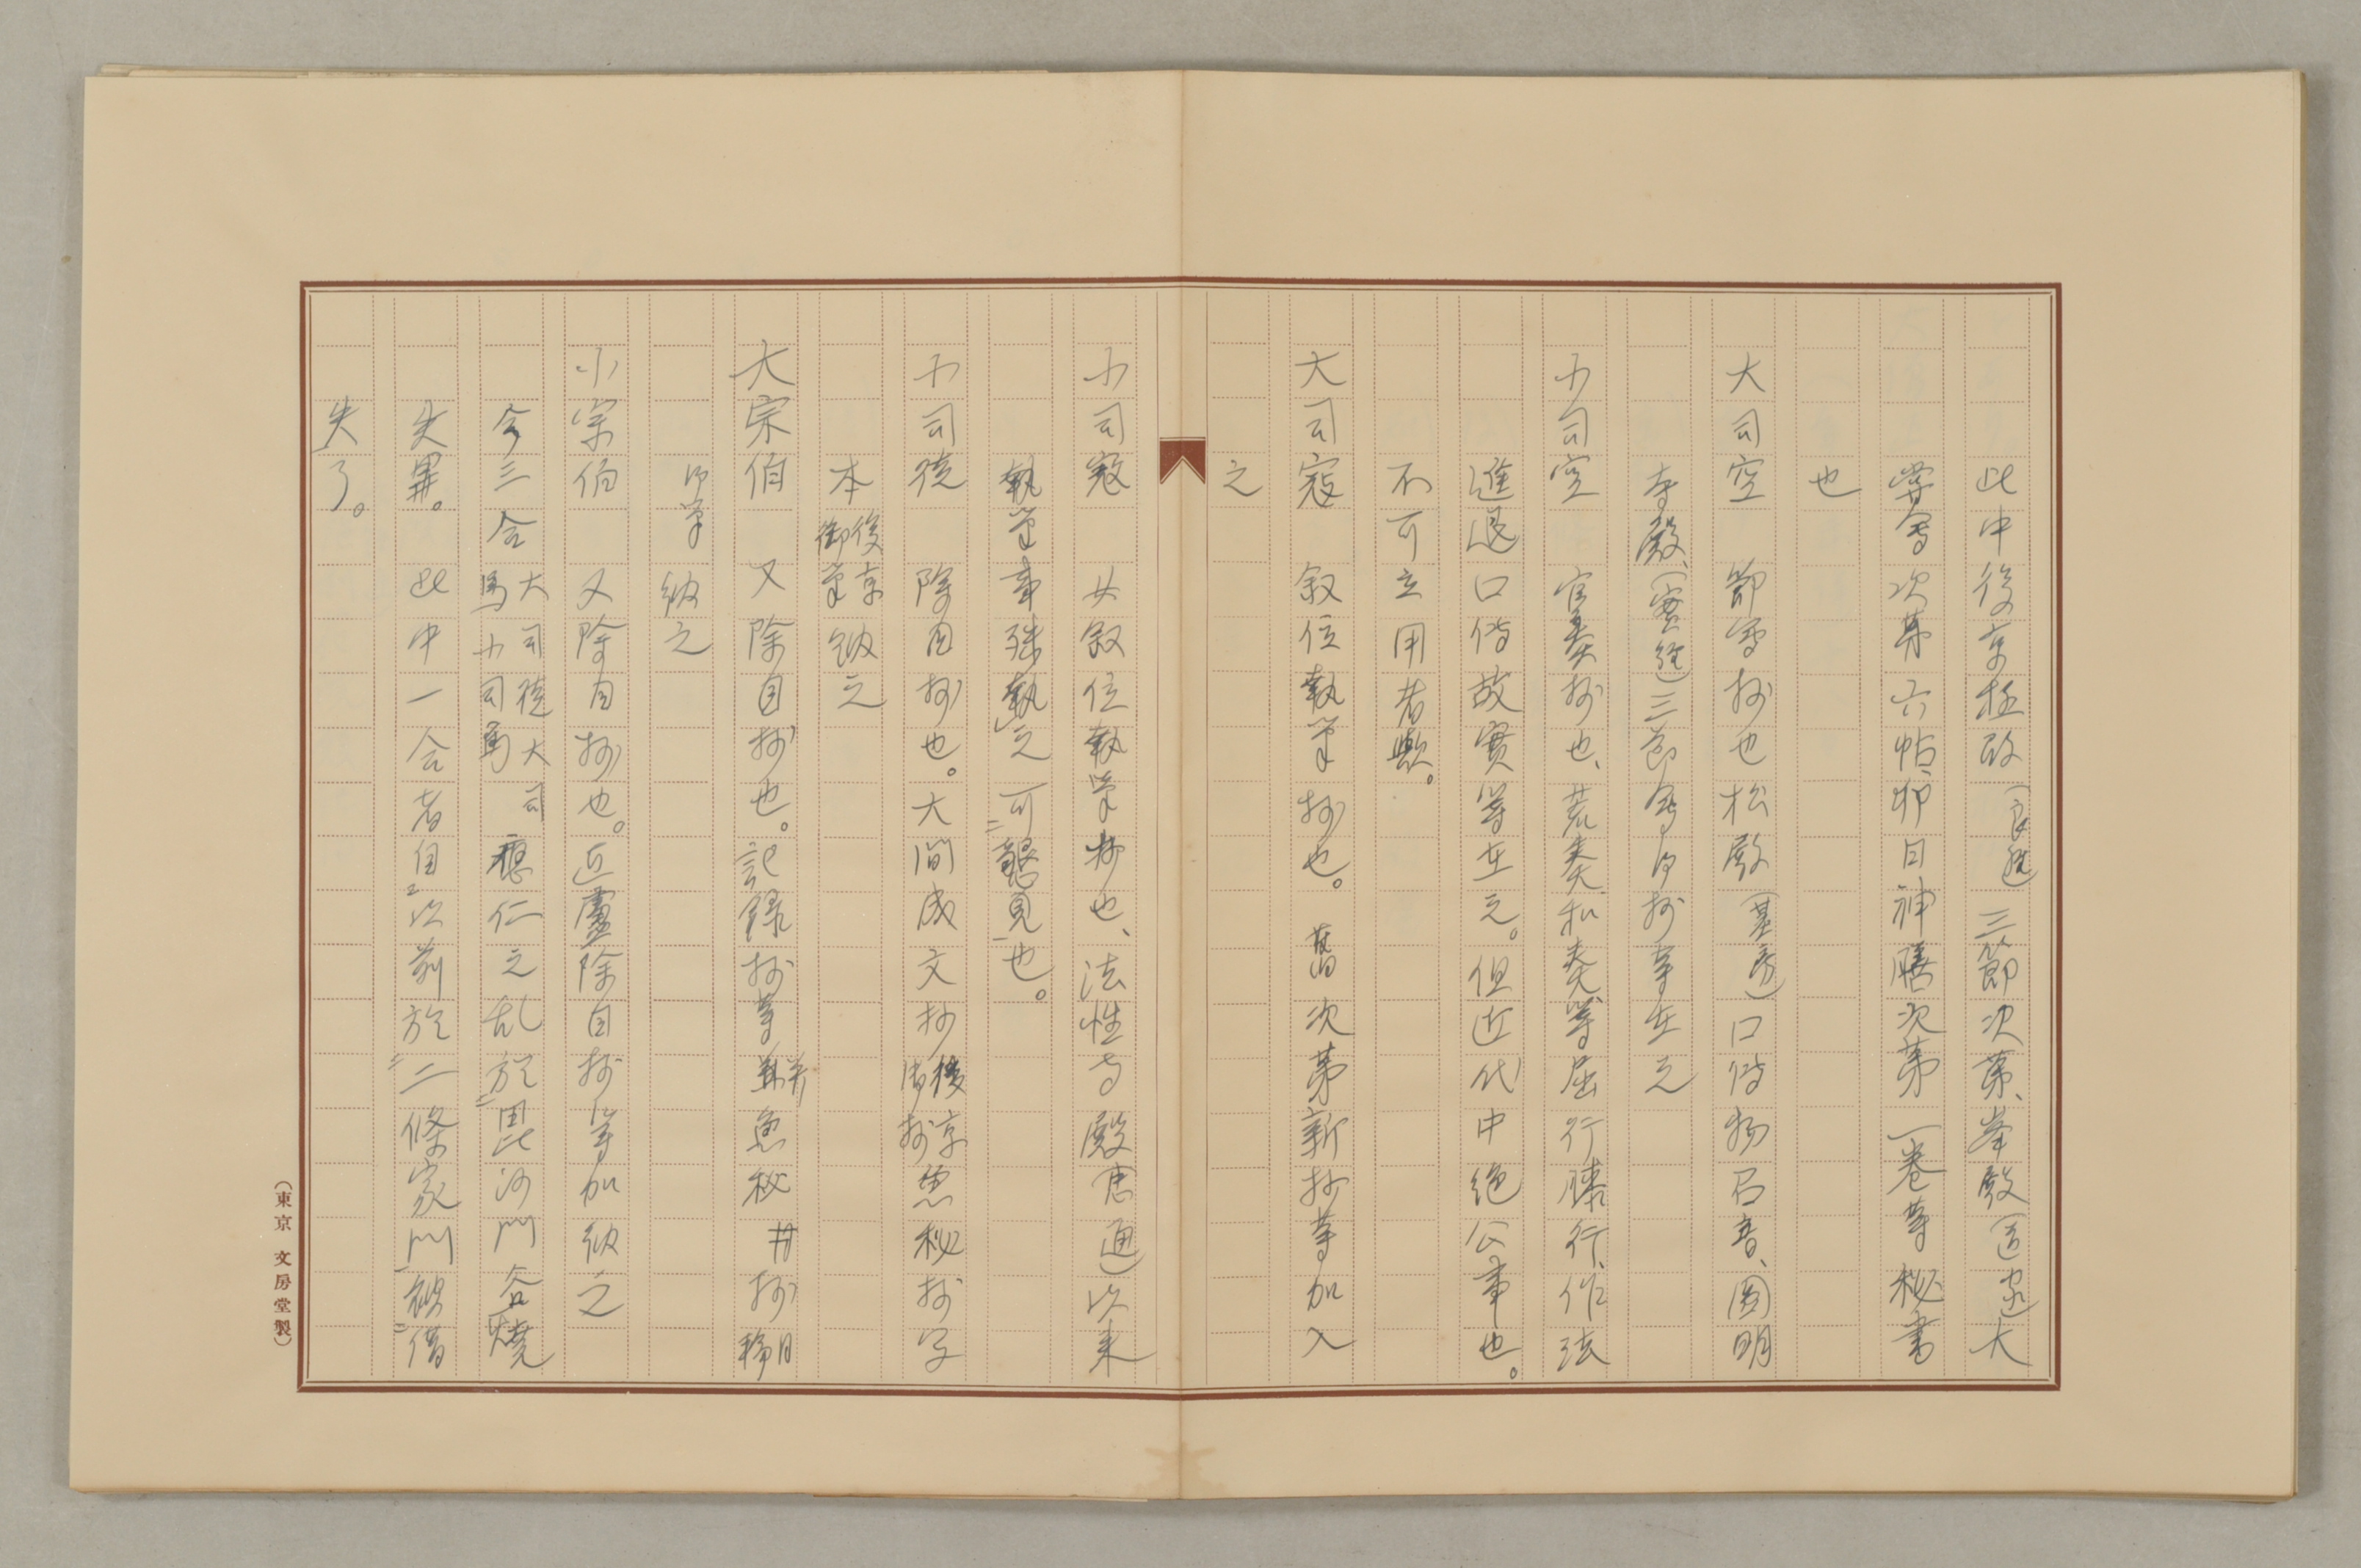 此中後京極殿(良経)三節次第、峯殿(道家)大
嘗会次第六帖、卯日神膳次第一巻等秘書
也
大司空 節会抄也松殿(基房)口伝物名音、圓明
寺殿(実経)三節会内抄等在之
小司空 官奏抄也、荒奏和奏等屈行膝行、作法
進退口伝故実等在之。但近代中絶公事也。
不可立用者歟。
大司寇 叙位執筆抄也。旧次第新抄等加入
之
小司寇 女叙位執筆抄也、法性寺殿忠通以来
執筆事殊執之可懇見也。
小司徒 除目抄也。大間成文抄後京極抄魚秘抄写
本後京御筆納之
大宗伯 又除目抄也。記録抄等并魚秘廿抄除目
御筆 納之
小宗伯 又除目抄也。近盧除目抄等加納之
今三合大司徒大司馬小司馬應仁之乱於毘沙門谷焼
失畢。此中一合者自是以前於二條家門被借
失了。
(東京 文房堂製)